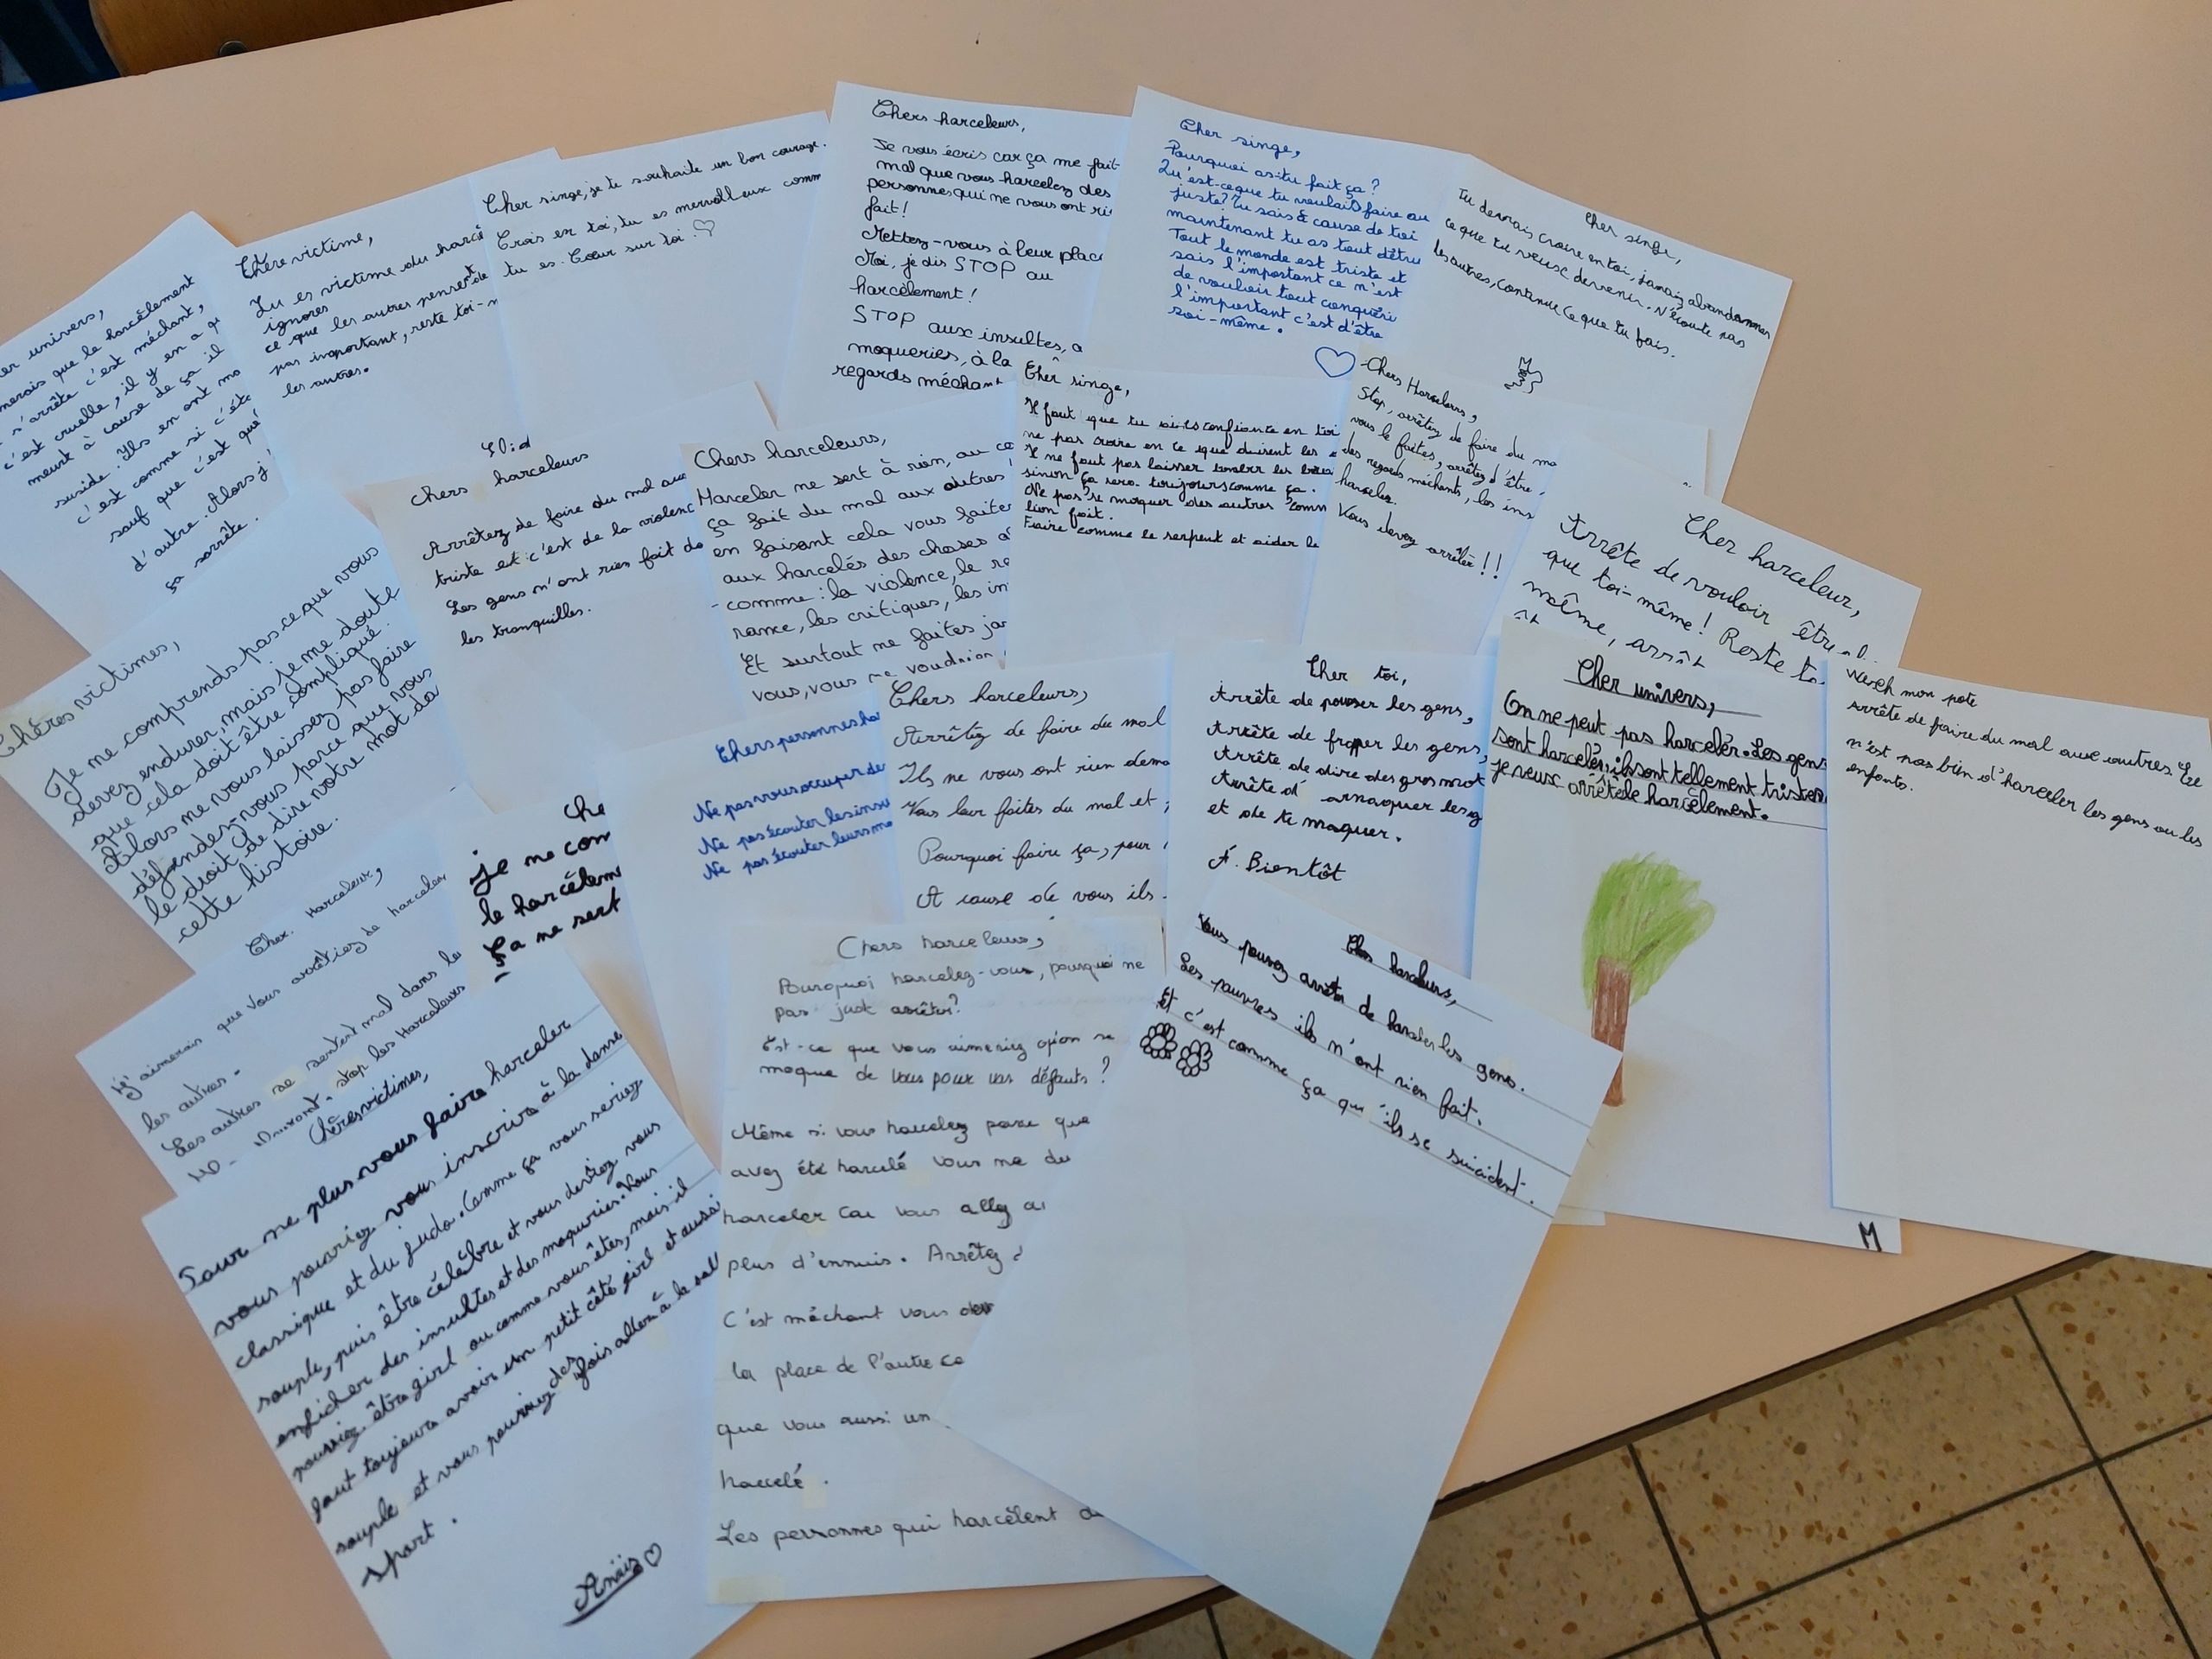 Cher singe, je te souhaite un bon courage.
Crois en toi, tu es merveilleux comm
tu es. Cœur sur toi.
Chers harceleurs,
Je vous écris car ça me fait
mal que vous harcelez des
personnes qui ne vous ont ri
fait!
Mettez-vous à leur place
Moi, je dis STOP au
harcèlement!
STOP aux insultes, a
moqueries, à la
regards méchant
Cher singe,
Pourquoi as-tu fait ça?
Qu'est-ce que tu voulais faire au
juste? Tu sais à cause de toi
maintenant tu as tout détru
Tout le monde est triste et
sais l'important ce n'est
de vouloir tout conquéri
l'important c'est d'être
soi-même.
Cher singe,
Tu devrais croire en toi, jamais abandonner
ce que tu veux devenir. N'écoute pas
les autres, continue ce que tu fais.
Chère victime,
Tu es victime du harcè
ignores
ce que les autres pensent de
pas important, reste toi-m
les autres.
er univers,
merais que le harcèlement
s'arrête c'est méchant,
c'est cruelle, il y en a q
meurt à cause de ça il
suside. Ils en ont ma
c'est comme si c'éta
sauf que c'est qu
d'autre. Alors j'
ça sarrête.
chers harceleurs
Arrêtez de faire du mal aux
triste et c'est de la violenc
Les gens n'ont rien fait
les tranquilles.
Chers harceleurs,
Harceler ne sert à rien, au co
ça fait du mal aux autres
en faisant cela vous faites
aux harcelés des choses
comme: la violence, le
rance, les critiques, les in
Et surtout ne faites ja
vous, vous ne voudri
Cher singe,
Il faut que tu sois confiante en toi
ne pas croire en ce que disent les
Il ne faut pas laisser tomber les
sinon ça sera toujours comme ça.
Ne pas se moquer des autres comm
lion fait.
Faire comme le serpent et aider le
Chers Harceleurs,
Stop, arrêtez de faire du ma
vous le faites, arrêtez d'être
des regards méchants, les ins
harceler.
Vous devez arrêter!!
Cher harceleur,
Arrête de vouloir être
que toi-même! Reste to
même, arrêt
Chères victimes,
Je ne comprends pas ce que vous
devez endurer, mais je me doute
que cela doit être compliqué.
Alors ne vous laissez pas faire
défendez-vous parce que vous
le droit de dire votre mot da
cette histoire.
Che
je ne com
le harcèlem
Ça ne sert
Chers personnes ha
Ne pas vous occuper de
Ne pas écouter les insu
Ne pas écouter leurs mo
Chers harceleurs,
Arrêtez de faire du mal
Ils ne vous ont rien dema
Vous leur faites du mal et
Pourquoi faire ça, pour
A cause de vous ils
Cher toi,
Arrête de pousser les gens,
Arrête de frapper les gens,
Arrête de dire des gros mot
Arrête d'arnaquer les g
et de te moquer.
A Bientôt
Cher univers,
On ne peut pas harceler. Les gens
sont harcelés, ils sont tellement tristes,
je veux arrêté le harcèlement.
M
Wesh mon pote
Arrête de faire du mal aux autres. Ce
n'est pas bien d'harceler les gens ou les
enfants.
Cher Harceleur,
j'aimerais que vous arrêtiez de harceler
les autres.
Les autres se sentent mal dans le
stop les Harceleurs
Chères victimes,
Pour ne plus vous faire harceler
vous pourriez vous inscrire à la danse
classique et du judo. Comme ça vous seriez
souple, puis être célèbre et vous devriez vous
enficher des insultes et des moqueries. Vous
pourriez être girl ou comme vous êtes, mais il
faut toujours avoir un petit côté girl et aussi
souple et vous pourriez des fois aller à la sall
sport.
Anaïs
Chers harceleurs,
Pourquoi harcelez-vous, pourquoi ne
pas just arrêter?
Est-ce que vous aimeriez qu'on se
moque de vous pour vos défauts?
Même si vous harcelez parce que
avez été harcelé vous ne de
harceler car vous allez a
plus d'ennuis. Arrêtez
C'est méchant vous
la place de l'autre ce
que vous aussi un
harcelé.
Les personnes qui harcèlent
Chers harceleurs,
Vous pouvez arrêter de harceler les gens.
Les pauvres ils n'ont rien fait.
Et c'est comme ça qu'ils se suicident.